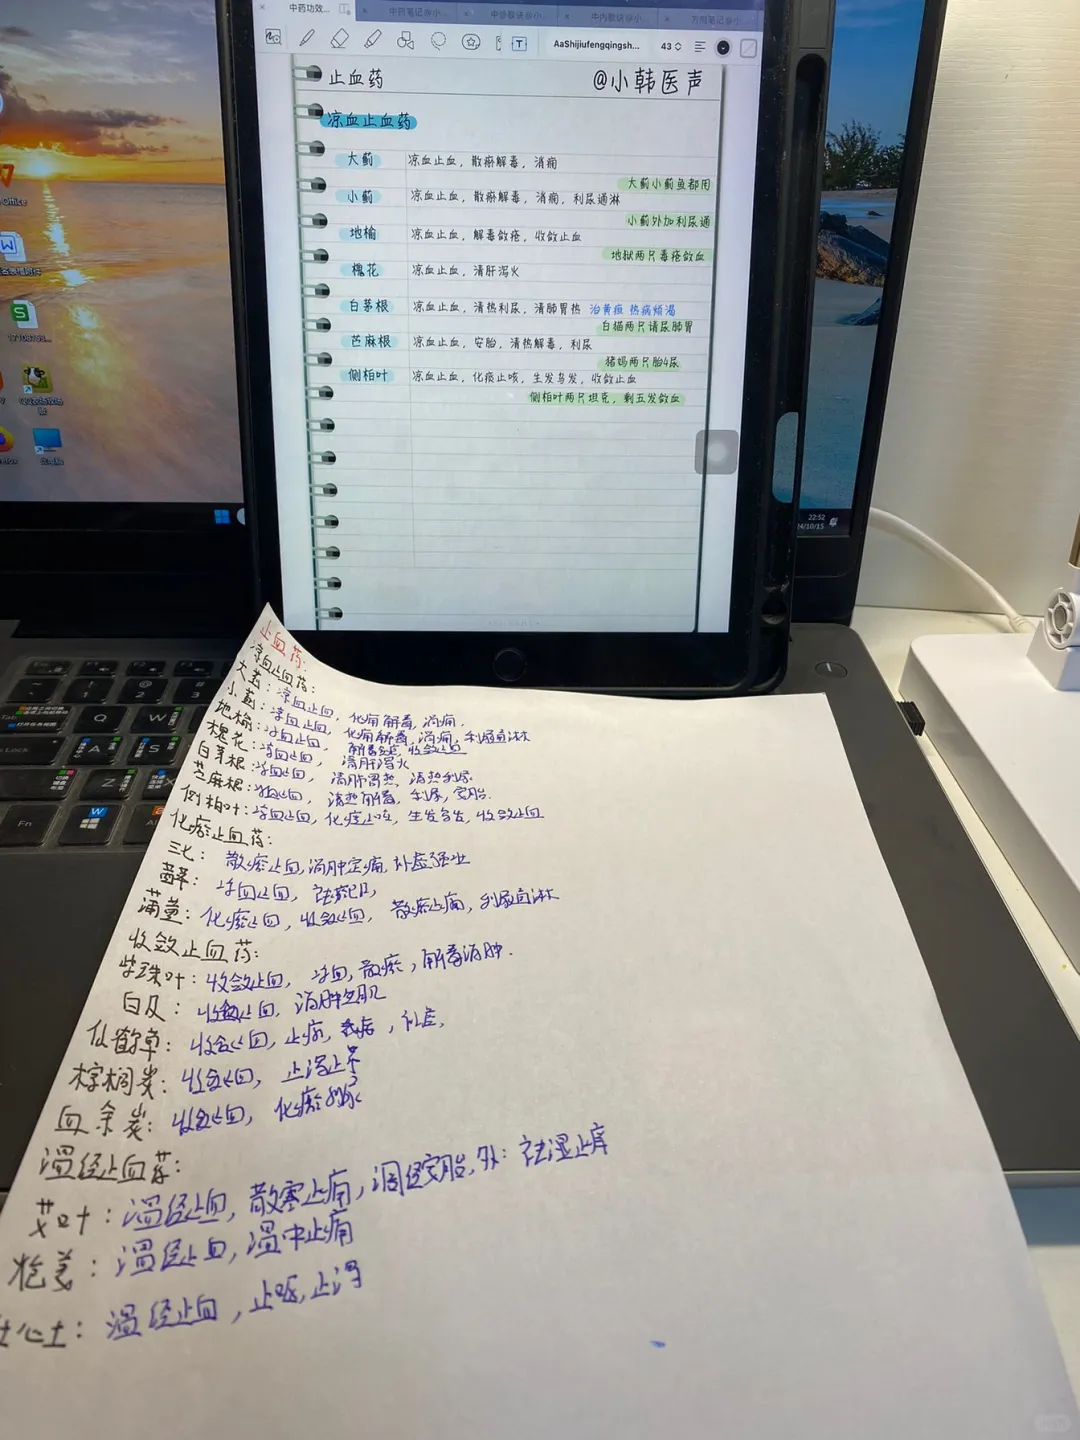 中药功效...
中药笔记@小...
中诊歌诀@小...
中内歌诀@小...
方剂笔记@小...
AaShijiufengqingsh...
43
止血药
@小韩医声
凉血止血药
大蓟 凉血止血，散瘀解毒，消痈
大蓟小蓟鱼都用
小蓟 凉血止血，散瘀解毒，消痈，利尿通淋
小蓟外加利尿通
地榆 凉血止血，解毒敛疮，收敛止血
地狱两尺毒疮敛血
槐花 凉血止血，清肝泻火
白茅根 凉血止血，清热利尿，清肺胃热 治黄疸 热病烦渴
白猫两尺请尿肺胃
苎麻根 凉血止血，安胎，清热解毒，利尿
猪妈两尺胎4尿
侧柏叶 凉血止血，化痰止咳，生发乌发，收敛止血
侧柏叶两尺坦克，剩五发敛血
Office
22:52
24/10/15
Q
W
A
S
Z
X
Fn
止血药：
凉血止血药：
大蓟：凉血止血，化痈解毒，消痈.
小蓟：凉血止血，化痈解毒，消痈，利尿通淋
地榆：凉血止血，解毒敛疮，收敛止血
槐花：凉血止血，清肝泻火
白茅根：凉血止血，清肺胃热，清热利尿.
苎麻根：凉血止血，清热解毒，利尿，安胎.
侧柏叶：凉血止血，化痰止咳，生发乌发，收敛止血
化瘀止血药：
三七：散瘀止血，消肿定痛，补虚强壮
茜草：凉血止血，
蒲黄：化瘀止血，收敛止血，散瘀止痛，利尿通淋
收敛止血药：
紫珠叶：收敛止血，凉血，散瘀，解毒消肿.
白及：收敛止血，消肿生肌
仙鹤草：收敛止血，止痢，补虚，
棕榈炭：收敛止血，止泻止带
血余炭：收敛止血，化瘀利尿
温经止血药：
艾叶：温经止血，散寒止痛，调经安胎，外：祛湿止痒
炮姜：温经止血，温中止痛
灶心土：温经止血，止呕，止泻